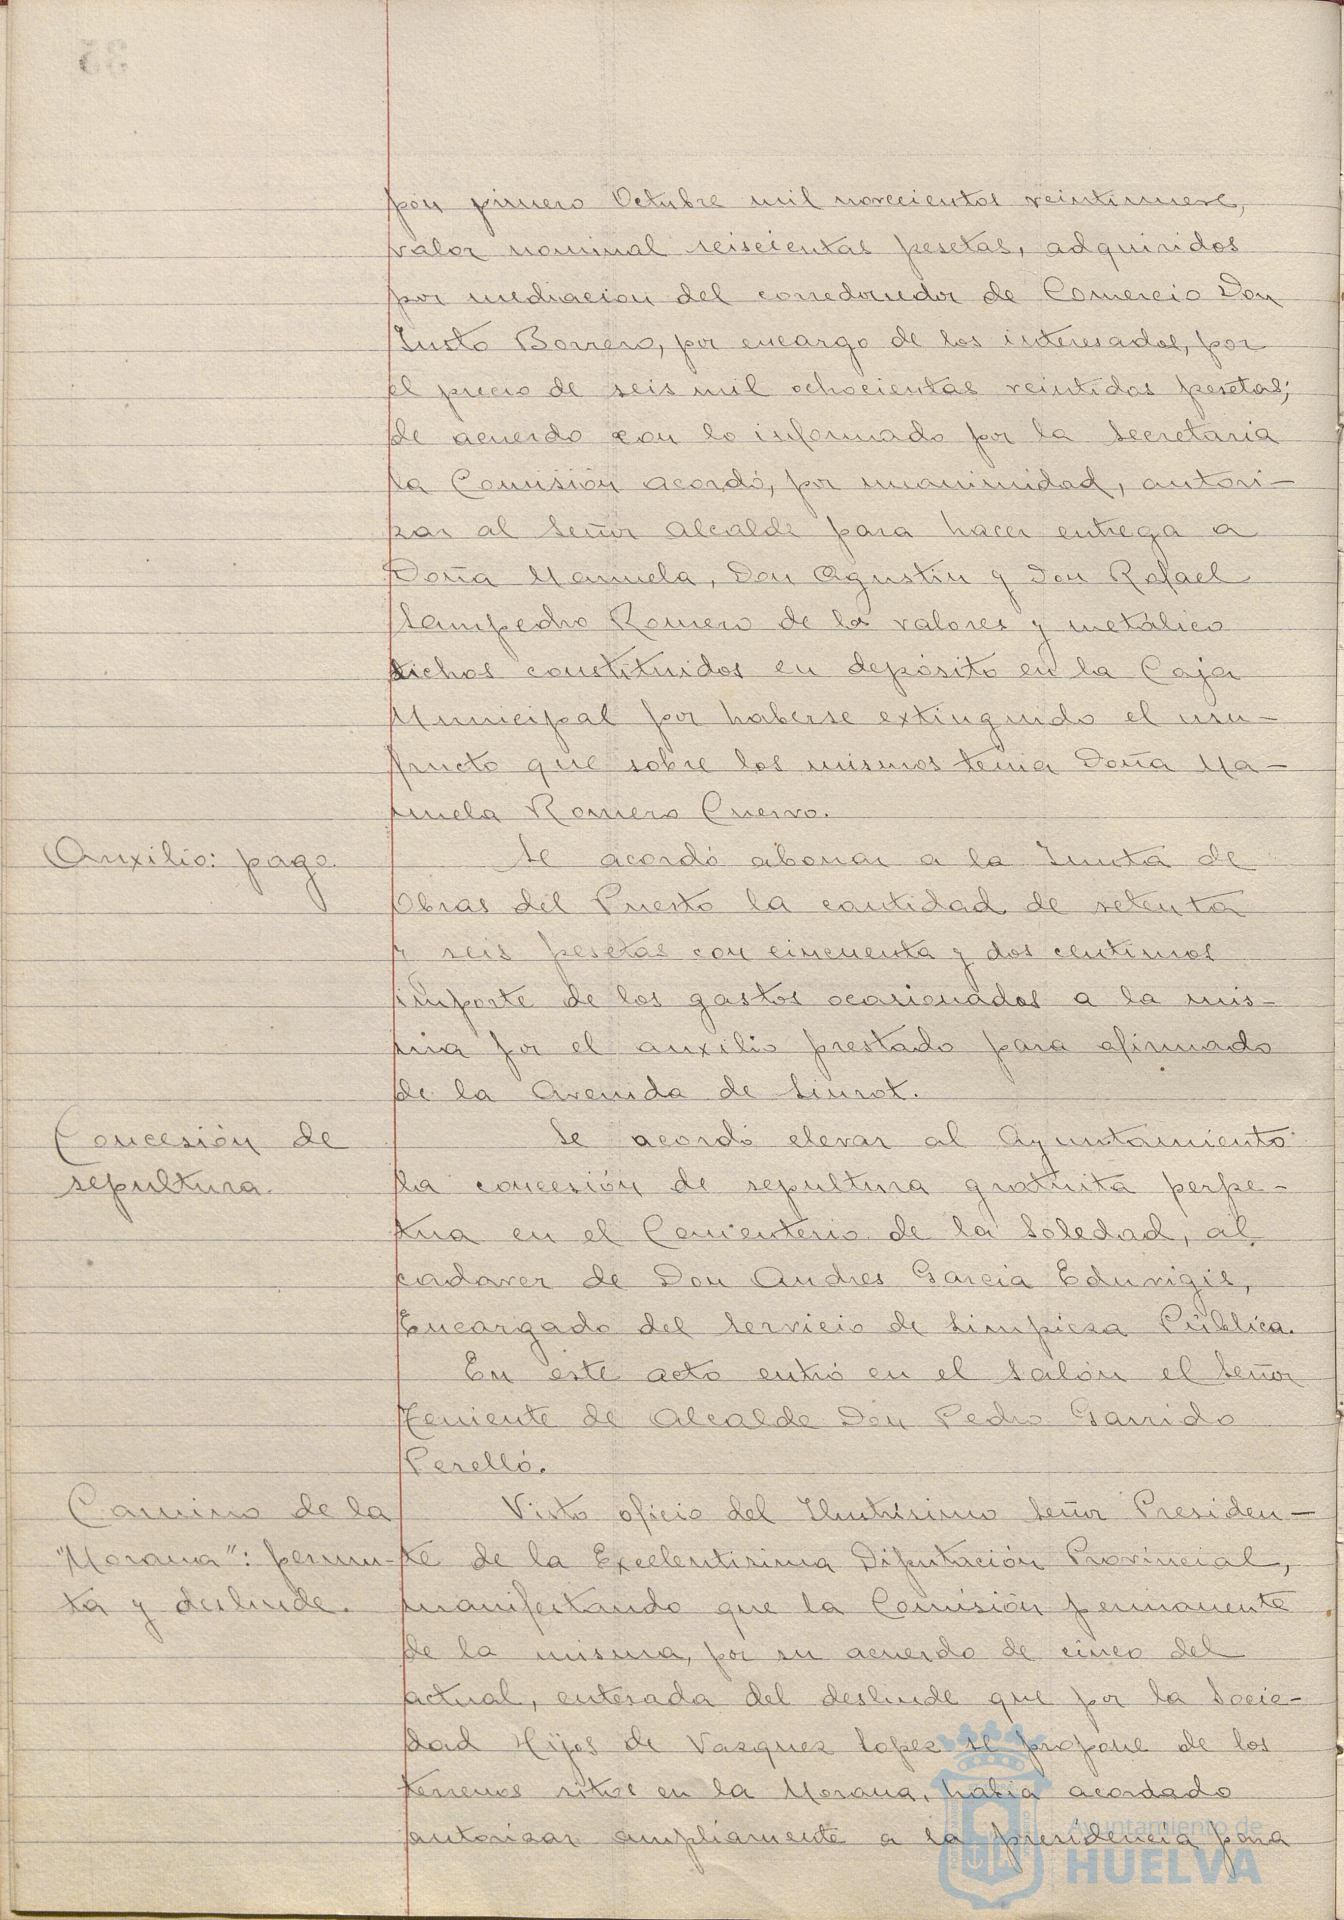 pón primero Octubre mil novecientos veintinueve,
valor nominal seiscientas pesetas, adquiridos
por mediacion del corredoredor de Comercio Don
Justo Borrero, por encargo de los interesados, por
el precio de seis mil ochocientas veintidos pesetas;
de acuerdo con lo informado por la Secretaria
la Comisión acordó, por unanimidad, autori-
zar al Señor Alcalde para hacer entrega a
Doña Manuela, Don Agustin y Don Rafael
Sampedro Romero de los valores y metálico
dichos constituidos en depósito en la Caja
Municipal por haberse extinguido el usu-
fructo que sobre los mismos tenia Doña Ma-
nuela Romero Cuervo.
Auxilio: pago.
Se acordó abonar a la Junta de
Obras del Puerto la cantidad de setenta
y seis pesetas con cincuenta y dos centimos
importe de los gastos ocasionados a la mis-
ma por el auxilio prestado para afirmado
de la Avenida de Siurot.
Concesión de
sepultura.
Se acordó elevar al Ayuntamiento
la concesión de sepultura gratuita perpe-
tua en el Cementerio de la Soledad, al
cadaver de Don Andres Garcia Eduvigis,
Encargado del Servicio de Limpieza Pública.
En este acto entró en el Salón el Señor
Teniente de Alcalde Don Pedro Garrido
Perelló.
Camino de la
"Morana": permu-
ta y deslinde.
Visto oficio del Ilustrisimo Señor Presiden-
te de la Excelentisima Diputación Provincial,
manifestando que la Comisión permanente
de la misma, por su acuerdo de cinco del
actual, enterada del deslinde que por la Socie-
dad Hijos de Vazquez Lopez se propone de los
terrenos sitos en la Morana, habia acordado
autorizar ampliamente a la presidencia para
Ayuntamiento de
HUELVA